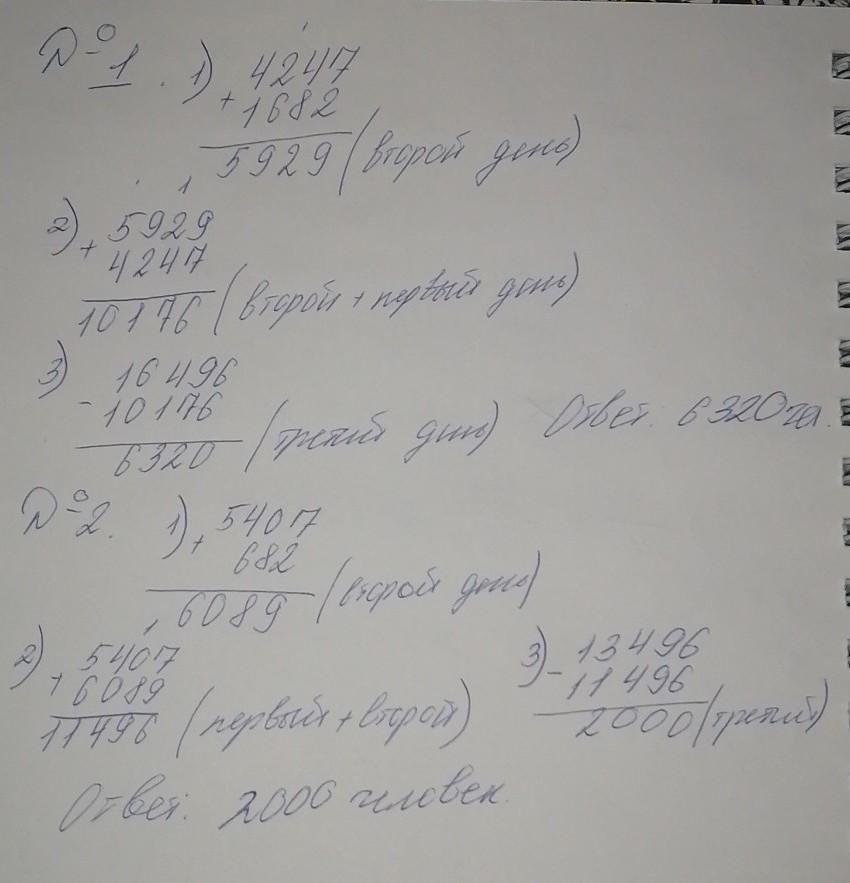 №1. 1) 4247
+ 1682
5929 (второй день)
2) + 5929
4247
10176 (второй + первый день)
3) 16496
- 10176
6320 (третий день) Ответ: 6320 га.
№2. 1) + 5407
682
6089 (второй день)
2) + 5407
6089
11496 (первый + второй)
3) - 13496
11496
2000 (третий)
Ответ: 2000 человек.